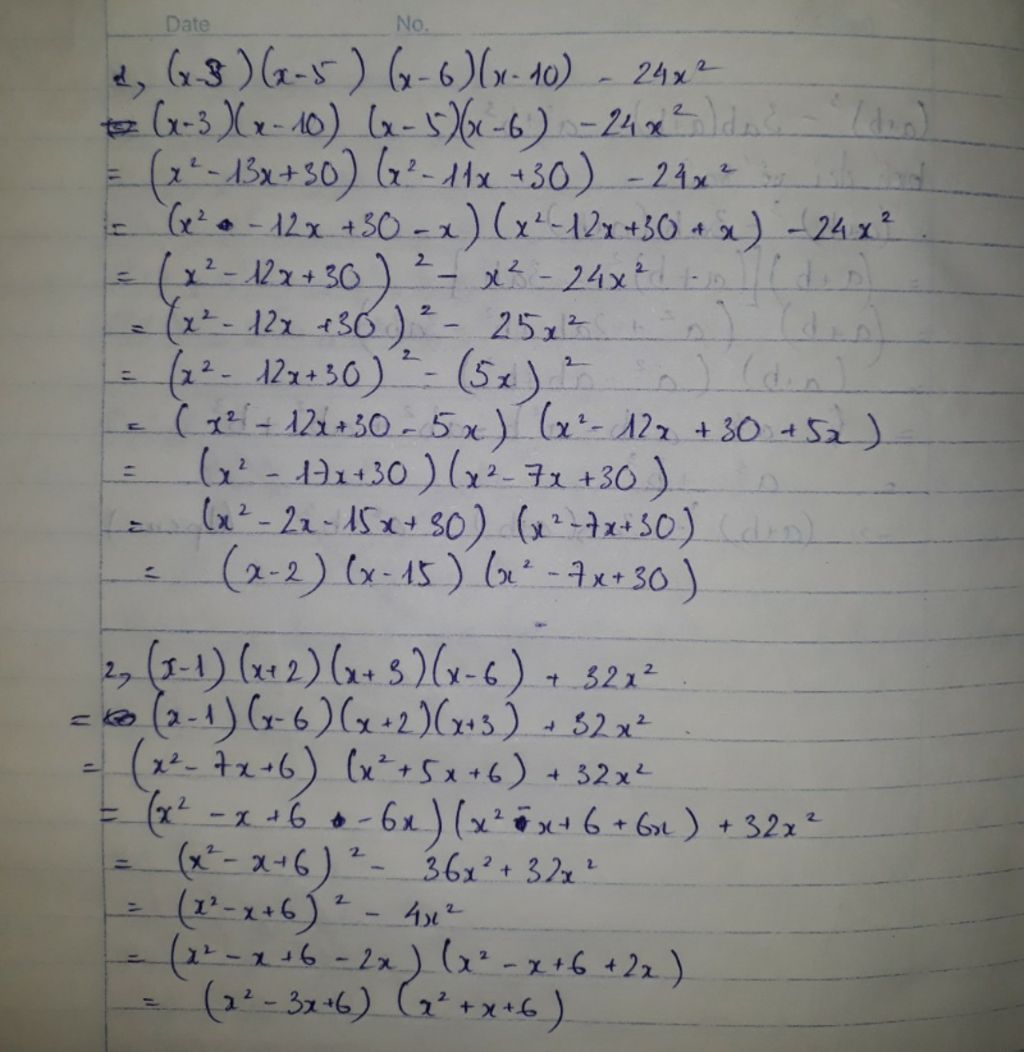 Date No.
1, (x-3)(x-5) (x-6)(x-10) - 24x²
= (x-3)(x-10) (x-5)(x-6) - 24x²
= (x² - 13x+30) (x² - 11x +30) - 24x²
= (x² - 12x +30 - x) (x² - 12x+30 + x) - 24x²
= (x² - 12x+30)² - x² - 24x²
= (x² - 12x +30)² - 25x²
= (x² - 12x+30)² - (5x)²
= (x² - 12x+30 - 5x) (x² - 12x +30 +5x)
= (x² - 17x+30) (x² - 7x +30)
= (x² - 2x - 15x +30) (x² - 7x+30)
= (x-2) (x-15) (x² - 7x+30)
2, (x-1) (x+2) (x+3) (x-6) + 32x²
= (x-1) (x-6) (x+2) (x+3) + 32x²
= (x² - 7x+6) (x² + 5x +6) + 32x²
= (x² - x +6 - 6x) (x² - x+6 + 6x) + 32x²
= (x² - x+6)² - 36x² + 32x²
= (x² - x+6)² - 4x²
= (x² - x +6 - 2x) (x² - x+6 +2x)
= (x² - 3x+6) (x² + x+6)